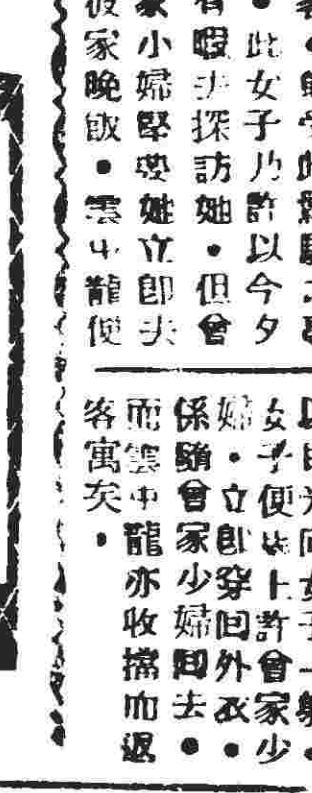 。此女子乃許以今夕
有暇去探訪她。但曾
家小婦堅要她立即去
彼家晚飯。雲中龍便
女子便與上許曾家少
婦。立即穿回外衣。
係隨曾家少婦回去。
而雲中龍亦收擋而退
客寓矣。